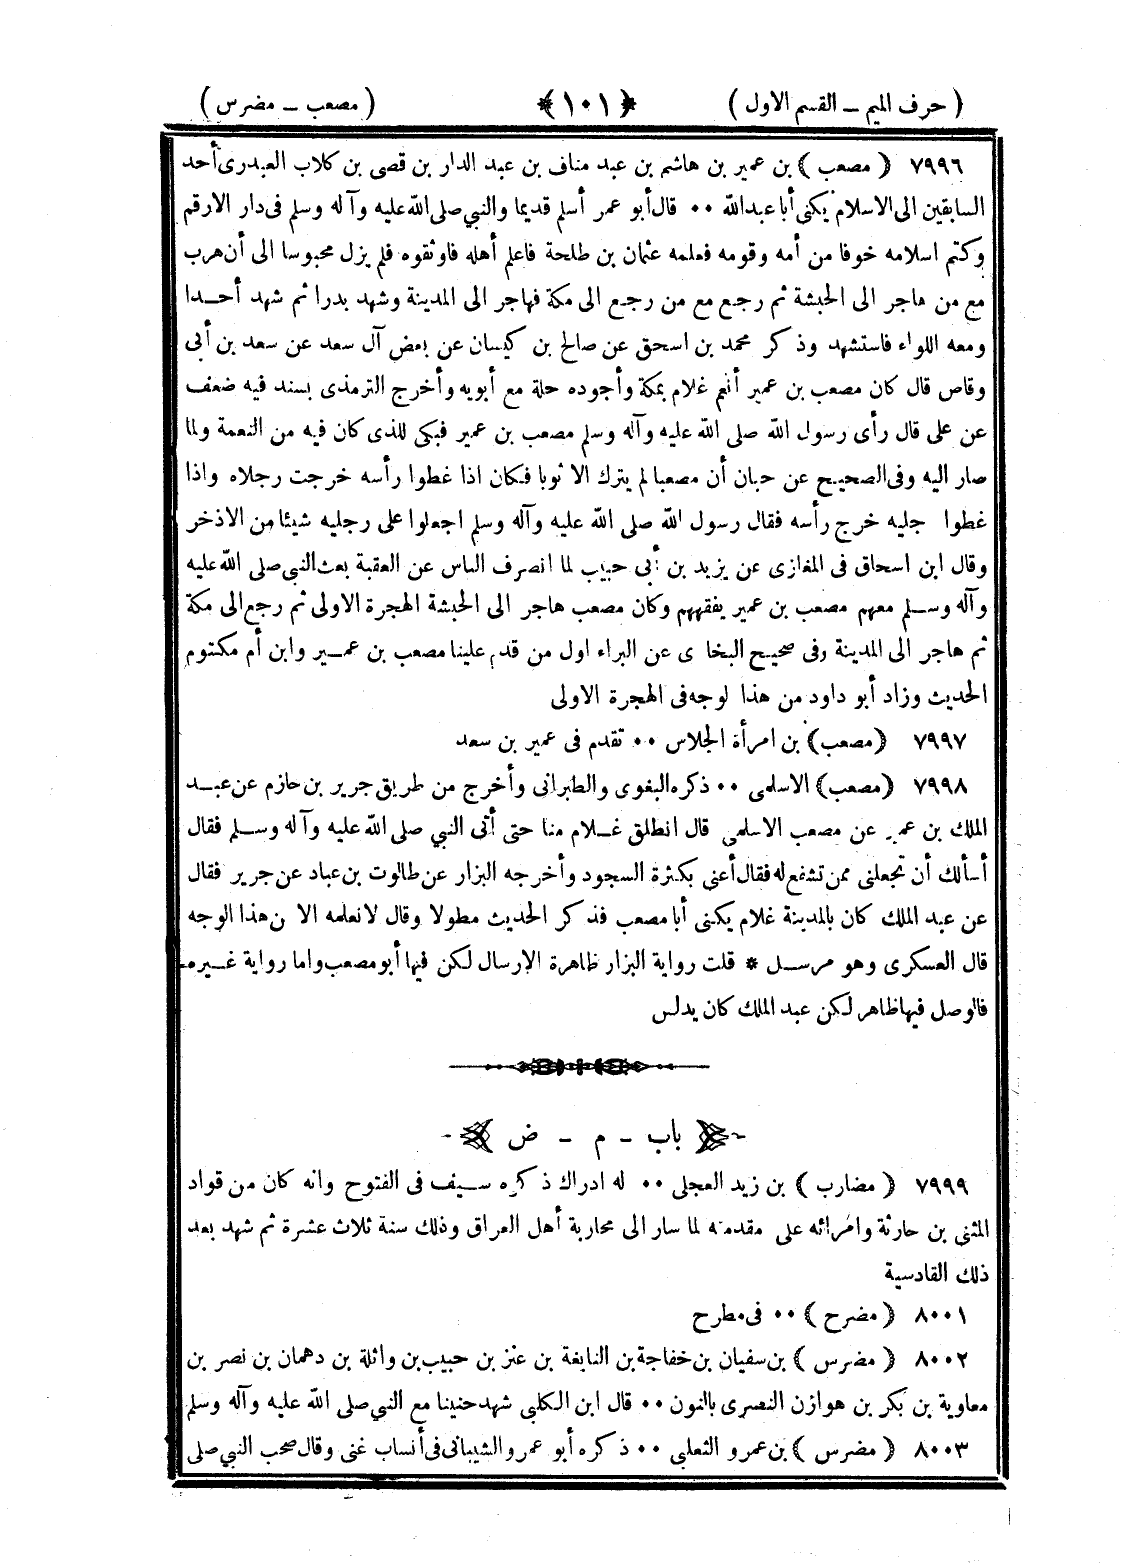 ( حرف الميم ــ القسم الاول ) ﴿ ١٠١ ﴾ ( مصعب ــ مضرس )
٧٩٩٦ ( مصعب ) بن عمير بن هاشم بن عبد مناف بن عبد الدار بن قصى بن كلاب العبدرى أحد
السابقين الى الاسلام يكنى أبا عبدالله ٠٠ قال أبو عمر أسلم قديما والنبي صلى الله عليه وآله وسلم فى دار الارقم
وكتم اسلامه خوفا من أمه وقومه فعلمه عثمان بن طلحة فاعلم أهله فاوثقوه فلم يزل محبوسا الى أن هرب
مع من هاجر الى الحبشة ثم رجع مع من رجع الى مكة فهاجر الى المدينة وشهد بدرا ثم شهد أحدا
ومعه اللواء فاستشهد وذكر محمد بن اسحق عن صالح بن كيسان عن بعض آل سعد عن سعد بن أبى
وقاص قال كان مصعب بن عمير أنعم غلام بمكة وأجوده حلة مع أبويه وأخرج الترمذى بسند فيه ضعف
عن على قال رأى رسول الله صلى الله عليه وآله وسلم مصعب بن عمير فبكى للذى كان فيه من النعمة ولما
صار اليه وفى الصحيح عن حبان أن مصعبا لم يترك الا ثوبا فكان اذا غطوا رأسه خرجت رجلاه واذا
غطوا جليه خرج رأسه فقال رسول الله صلى الله عليه وآله وسلم اجعلوا على رجليه شيئا من الاذخر
وقال ابن اسحاق فى المغازى عن يزيد بن أبى حبيب لما انصرف الناس عن العقبة بعث النبي صلى الله عليه
وآله وسلم معهم مصعب بن عمير يفقههم وكان مصعب هاجر الى الحبشة الهجرة الاولى ثم رجع الى مكة
ثم هاجر الى المدينة وفى صحيح البخا ى عن البراء اول من قدم علينا مصعب بن عمير وابن أم مكتوم
الحديث وزاد أبو داود من هذا لوجه فى الهجرة الاولى
٧٩٩٧ ( مصعب ) بن امرأة الجلاس ٠٠ تقدم فى عمير بن سعد
٧٩٩٨ ( مصعب ) الاسلمى ٠٠ ذكره البغوى والطبرانى وأخرج من طريق جرير بن حازم عن عبد
الملك بن عمير عن مصعب الاسلمى قال انطلق غلام منا حتى أتى النبي صلى الله عليه وآله وسلم فقال
أسألك أن تجعلنى ممن تشفع له فقال أعنى بكثرة السجود وأخرجه البزار عن طالوت بن عباد عن جرير فقال
عن عبد الملك كان بالمدينة غلام يكنى أبا مصعب فذكر الحديث مطولا وقال لا نعلمه الا ن هذا الوجه
قال العسكرى وهو مرسل * قلت رواية البزار ظاهرة الارسال لكن فيها أبو مصعب واما رواية غيره
فالوصل فيها ظاهر لكن عبد الملك كان يدلس
باب ــ م ــ ض
٧٩٩٩ ( مضارب ) بن زيد العجلى ٠٠ له ادراك ذكره سيف فى الفتوح وانه كان من قواد
المثنى بن حارثة وامرائه على مقدمته لما سار الى محاربة أهل العراق وذلك سنة ثلاث عشرة ثم شهد بعد
ذلك القادسية
٨٠٠١ ( مضرح ) ٠٠ فى مطرح
٨٠٠٢ ( مضرس ) بن سفيان بن خفاجة بن النابغة بن عنز بن حبيب بن واثلة بن دهمان بن نصر بن
معاوية بن بكر بن هوازن النصرى بالنون ٠٠ قال ابن الكلبى شهد حنينا مع النبي صلى الله عليه وآله وسلم
٨٠٠٣ ( مضرس ) بن عمرو الثعلبى ٠٠ ذكره أبو عمرو الشيبانى فى أنساب غنى وقال صحب النبي صلى